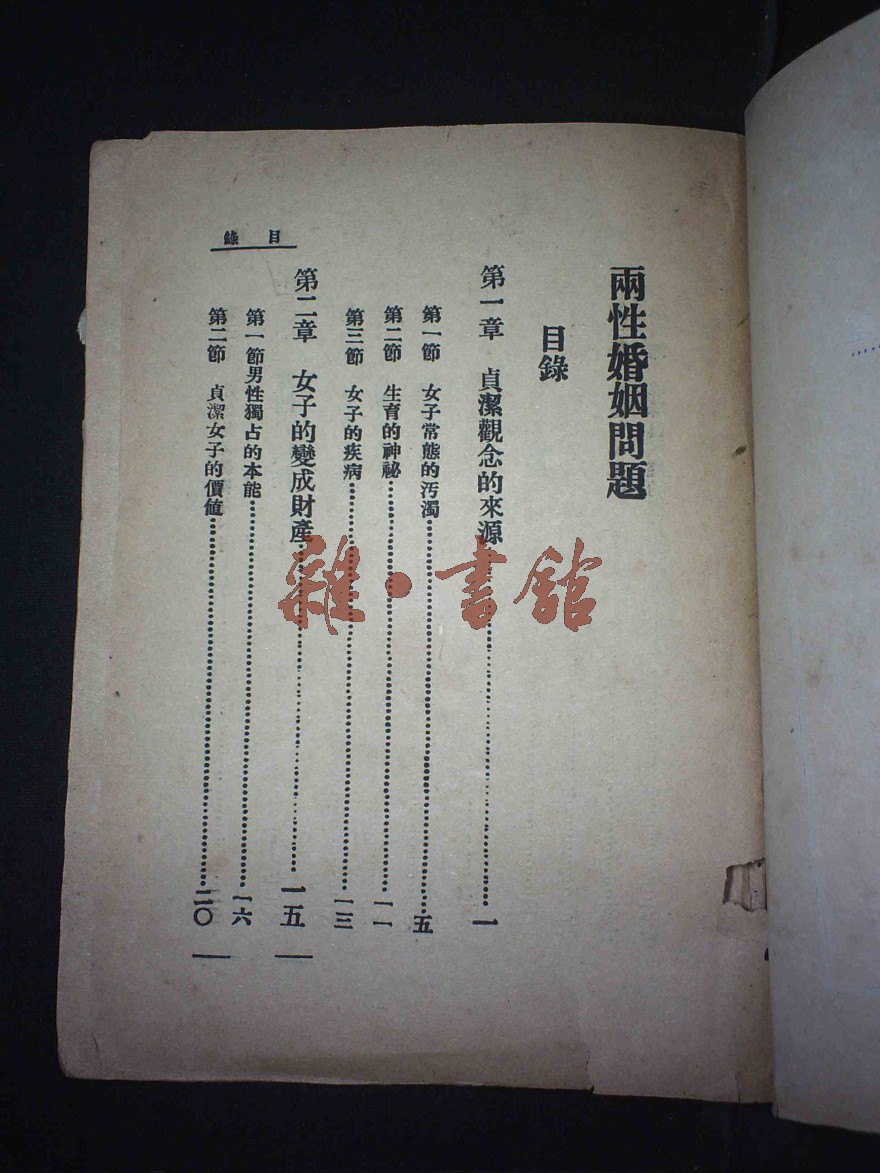 兩性婚姻問題
目錄
第一章 貞潔觀念的來源……一
第一節 女子常態的汚濁……五
第二節 生育的神祕……一一
第三節 女子的疾病……一三
第二章 女子的變成財產……一五
第一節男性獨占的本能……一六
第二節 貞潔女子的價值……二〇
目錄
雜·書館